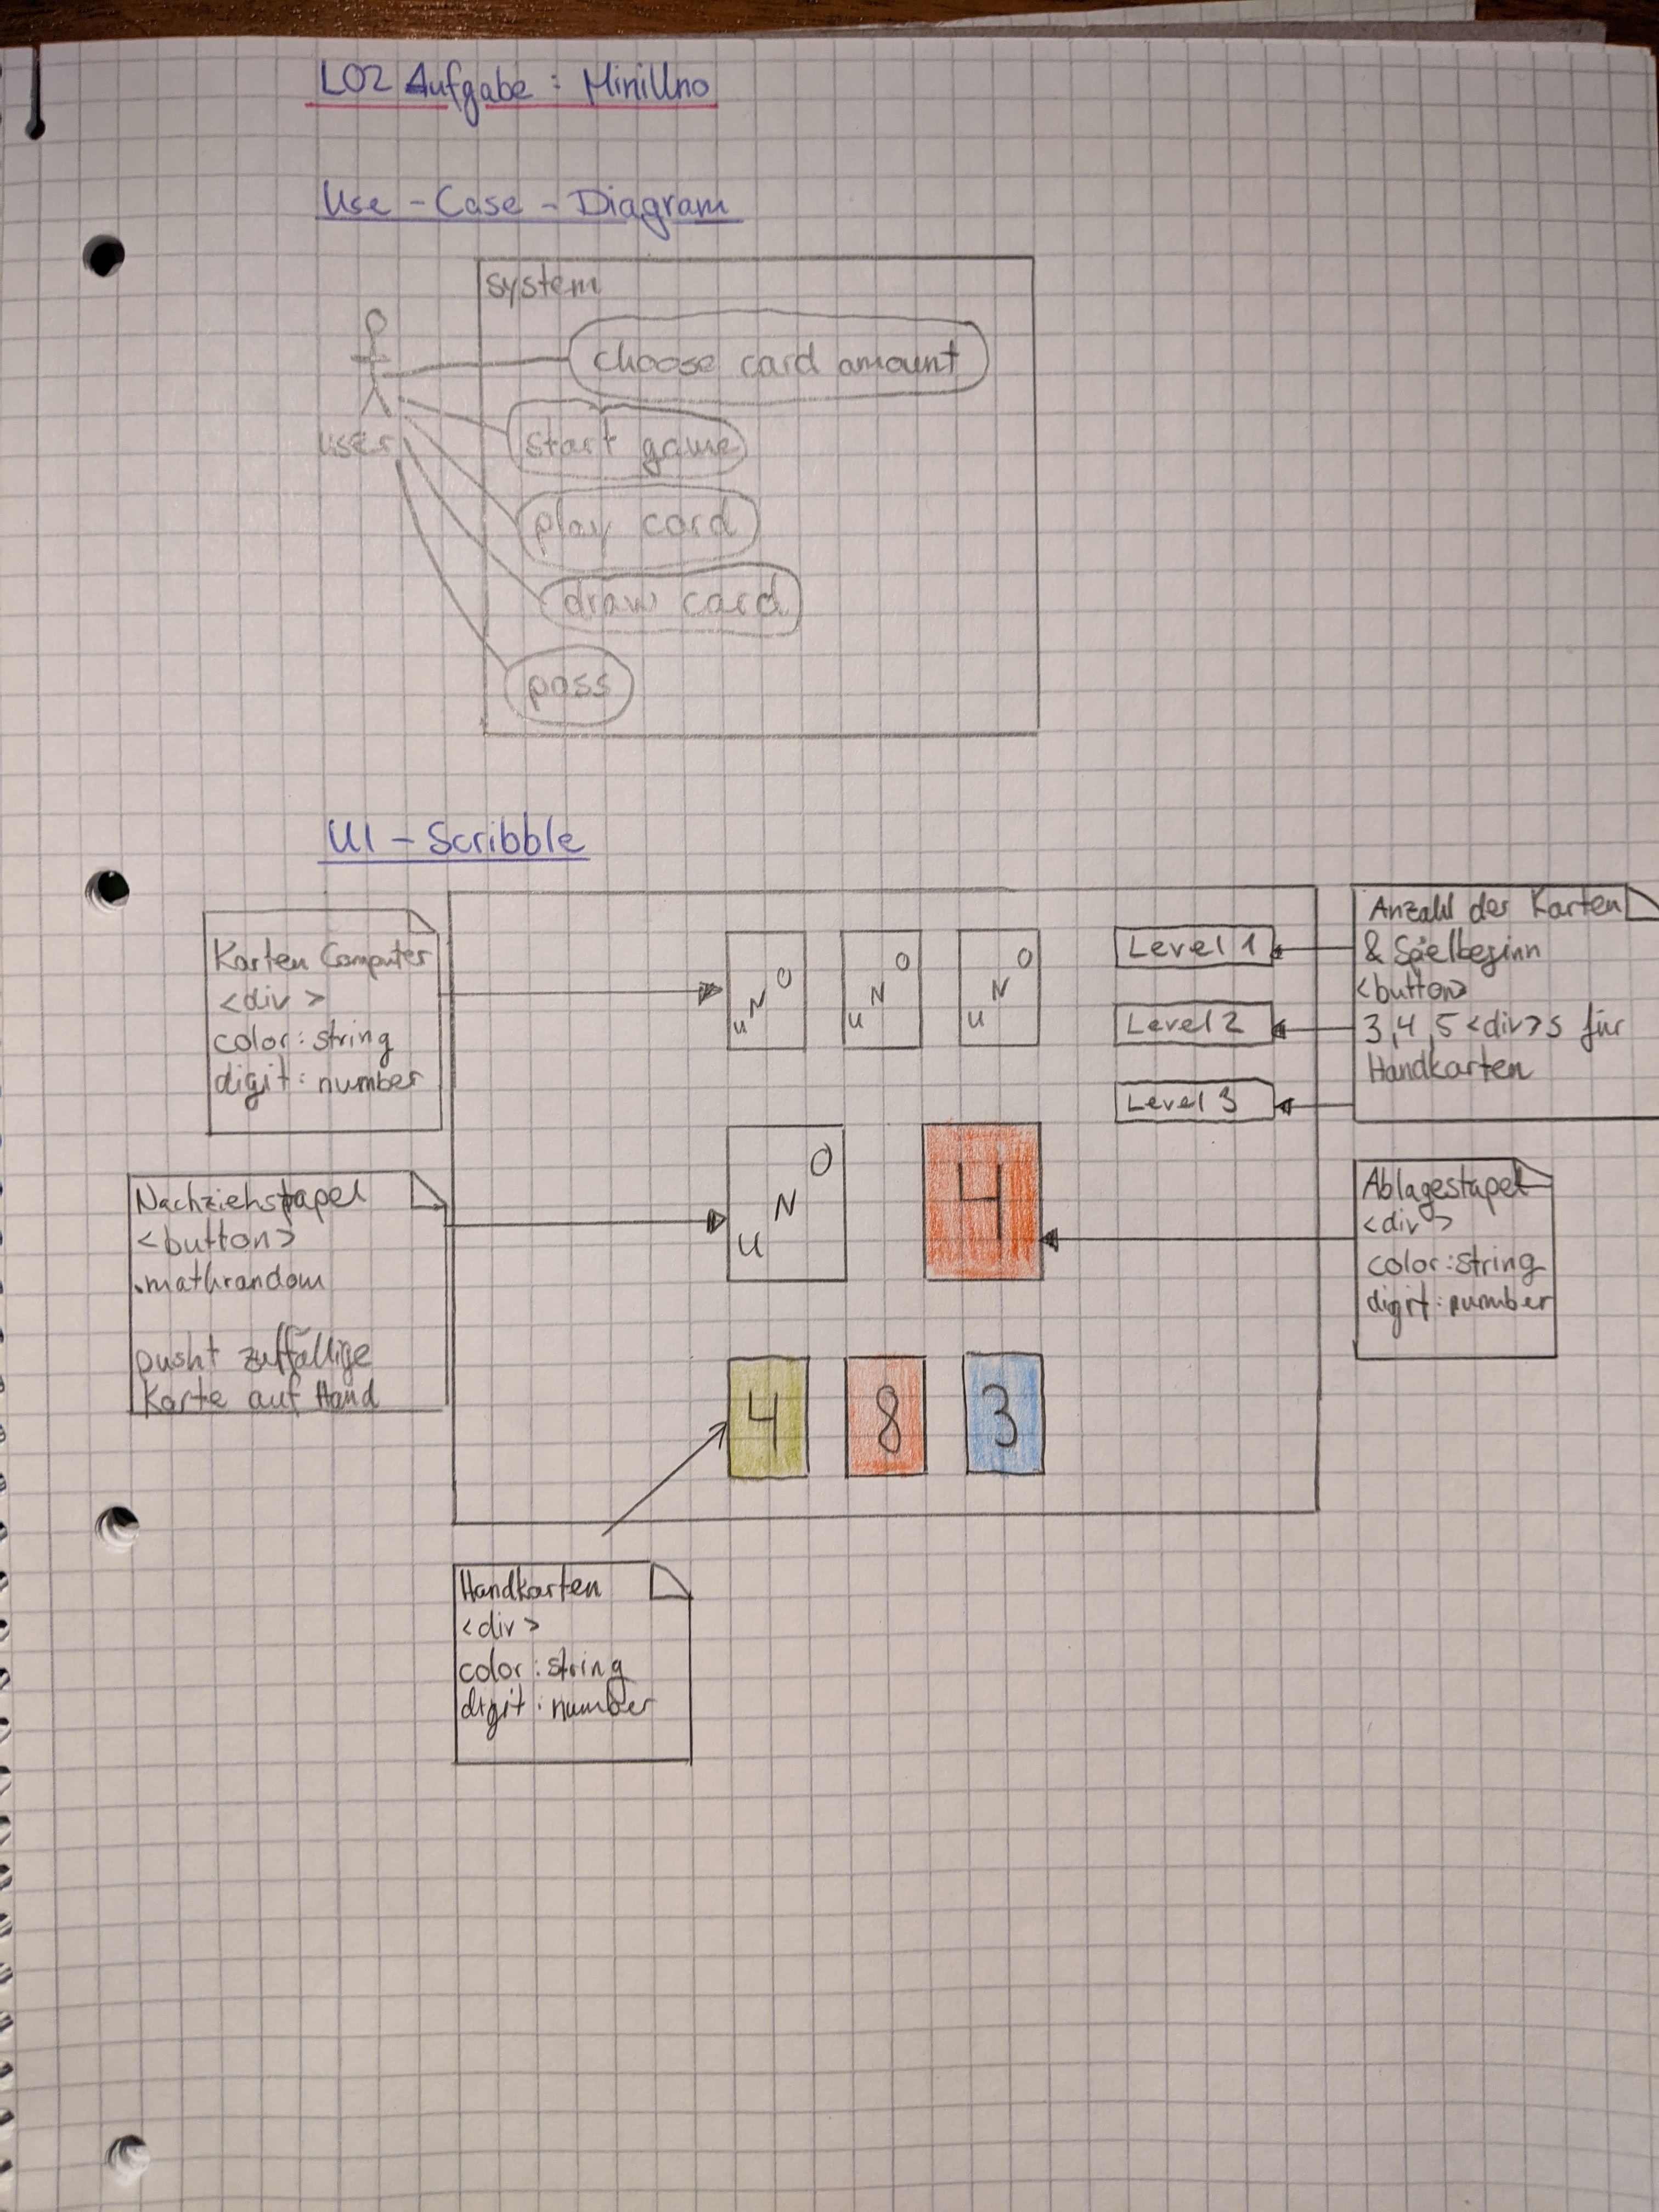 L02 Aufgabe : MiniUno
Use - Case - Diagram
system
choose card amount
start game
user
play card
draw card
pass
UI - Scribble
Karten Computer
<div>
color: string
digit: number
U N O
U N O
U N O
Level 1
Level 2
Level 3
Anzahl der Karten
& Spielbeginn
<button>
3,4,5 <div>s für
Handkarten
Nachziehstapel
<button>
.mathrandom
pusht zuffällige
Karte auf Hand
U N O
4
Ablagestapel
<div>
color: string
digit: number
4
8
3
Handkarten
<div>
color: string
digit: number